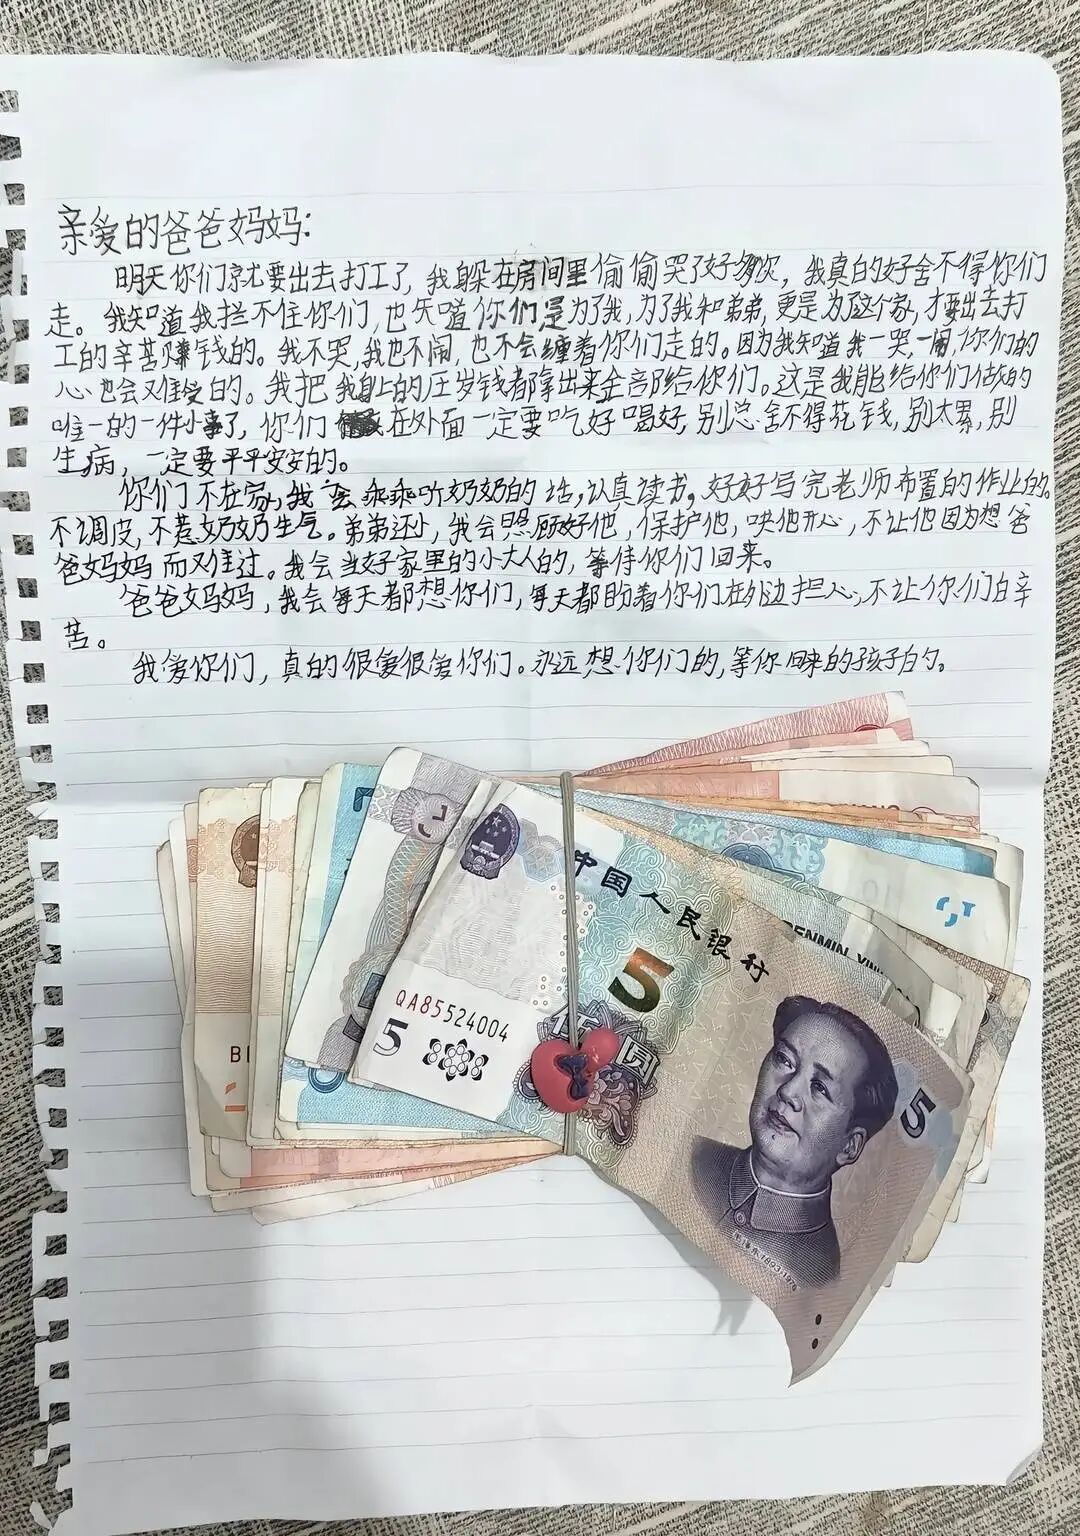 亲爱的爸爸妈妈:
明天你们就要出去打工了,我躲在房间里偷偷哭了好多次,我真的好舍不得你们
走。我知道我拦不住你们,也知道你们是为了我,为了我和弟弟,更是为了这个家,才要出去打
工的辛苦赚钱的。我不哭,我也不闹,也不会缠着你们走的。因为我知道我一哭,一闹,你们的
心也会难受的。我把我身上的压岁钱都拿出来全部给你们。这是我能给你们做的
唯一的一件小事了,你们在外面一定要吃好喝好,别总舍不得花钱,别太累,别
生病,一定要平平安安的。
你们不在家,我会乖乖听奶奶的话,认真读书,好好写完老师布置的作业的。
不调皮,不惹奶奶生气。弟弟还小,我会照顾好他,保护他,哄他开心,不让他因为想爸
爸妈妈而难过。我会当好家里的小大人的,等待你们回来。
爸爸妈妈,我会每天都想你们,每天都盼着你们在外边担心,不让你们白辛
苦。
我爱你们,真的很爱很爱你们。永远想你们的,等你回来的孩子的。
中国人民银行
RENMIN YIN
5
QA85524004
5
伍圆
5